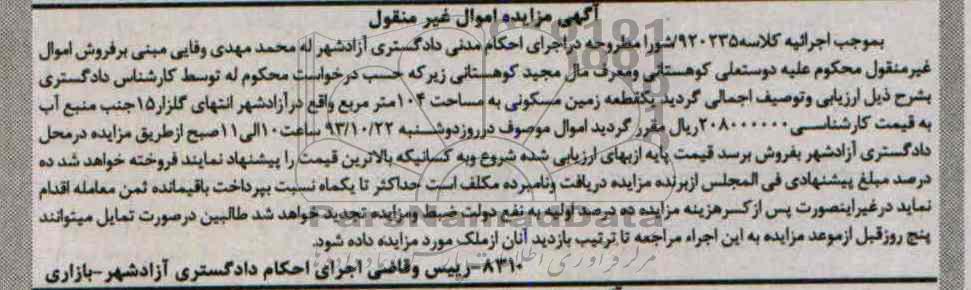 آگهی مزایده اموال غیر منقول
بموجب اجرائیه کلاسه۹۲۰۲۳۵/شورا مطروحه دراجرای احکام مدنی دادگستری آزادشهر له محمد مهدی وفایی مبنی برفروش اموال
غیرمنقول محکوم علیه دوستعلی کوهستانی ومعرف مال مجید کوهستانی زیرکه حسب درخواست محکوم له توسط کارشناس دادگستری
بشرح ذیل ارزیابی وتوصیف اجمالی گردید یکقطعه زمین مسکونی به مساحت ۱۰۴متر مربع واقع درآزادشهر انتهای گلزار۱۵جنب منبع آب
به قیمت کارشناسی۲۰۸۰۰۰۰۰۰ریال مقرر گردید اموال موصوف درروزدوشنبه ۹۳/۱۰/۲۲ ساعت۱۰الی۱۱صبح ازطریق مزایده درمحل
دادگستری آزادشهر بفروش برسد قیمت پایه ازبهای ارزیابی شده شروع وبه کسانیکه بالاترین قیمت را پیشنهاد نمایند فروخته خواهد شد ده
درصد مبلغ پیشنهادی فی المجلس ازبرنده مزایده دریافت ونامبرده مکلف است حداکثر تا یکماه نسبت بپرداخت باقیمانده ثمن معامله اقدام
نماید درغیراینصورت پس ازکسرهزینه مزایده ده درصد اولیه به نفع دولت ضبط ومزایده تجدید خواهد شد طالبین درصورت تمایل میتوانند
پنج روزقبل ازموعد مزایده به این اجراء مراجعه تا ترتیب بازدید آنان ازملک مورد مزایده داده شود.
۸۳۱۰-رییس وقاضی اجرای احکام دادگستری آزادشهر-بازاری
ParsNamadData